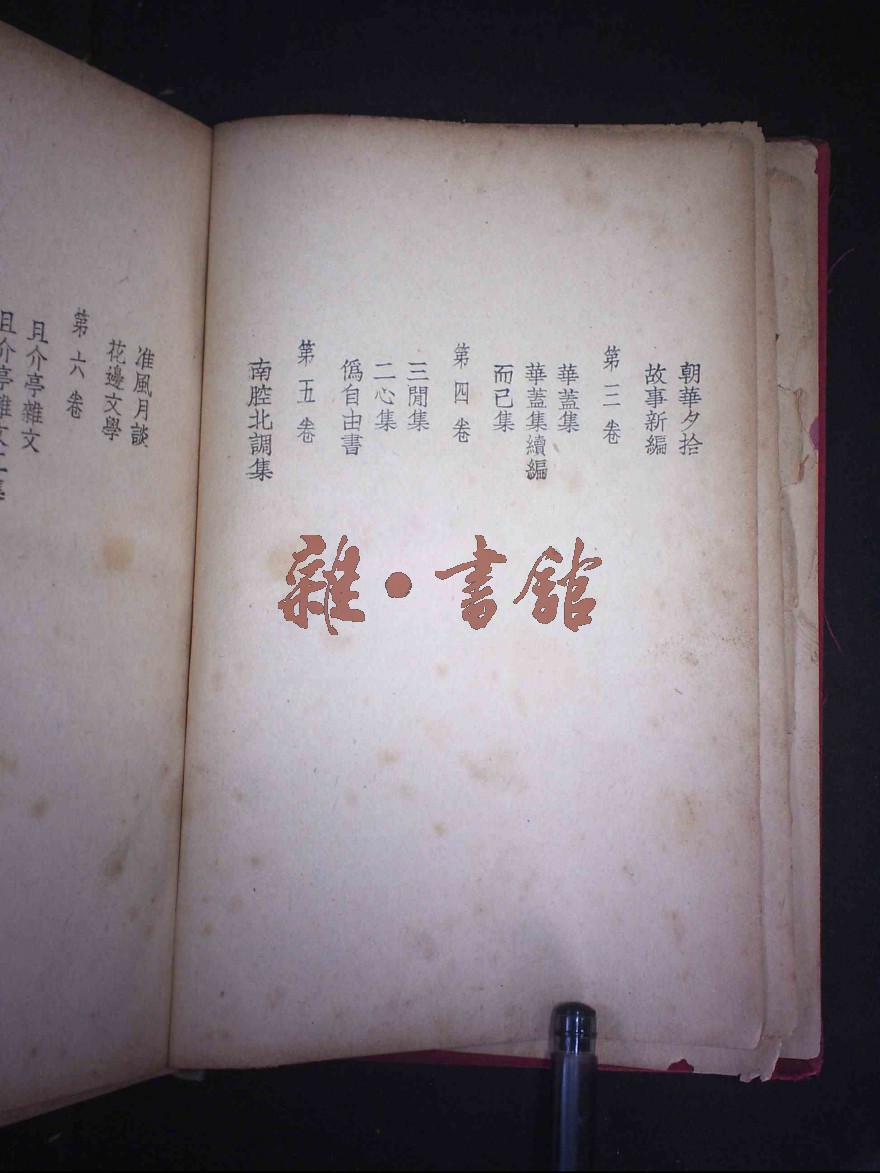 朝華夕拾
故事新編
第三卷
華蓋集
華蓋集續編
而已集
第四卷
三閒集
二心集
僞自由書
第五卷
南腔北調集
准風月談
花邊文學
第六卷
且介亭雜文
且介亭雜文二集
雜·書館